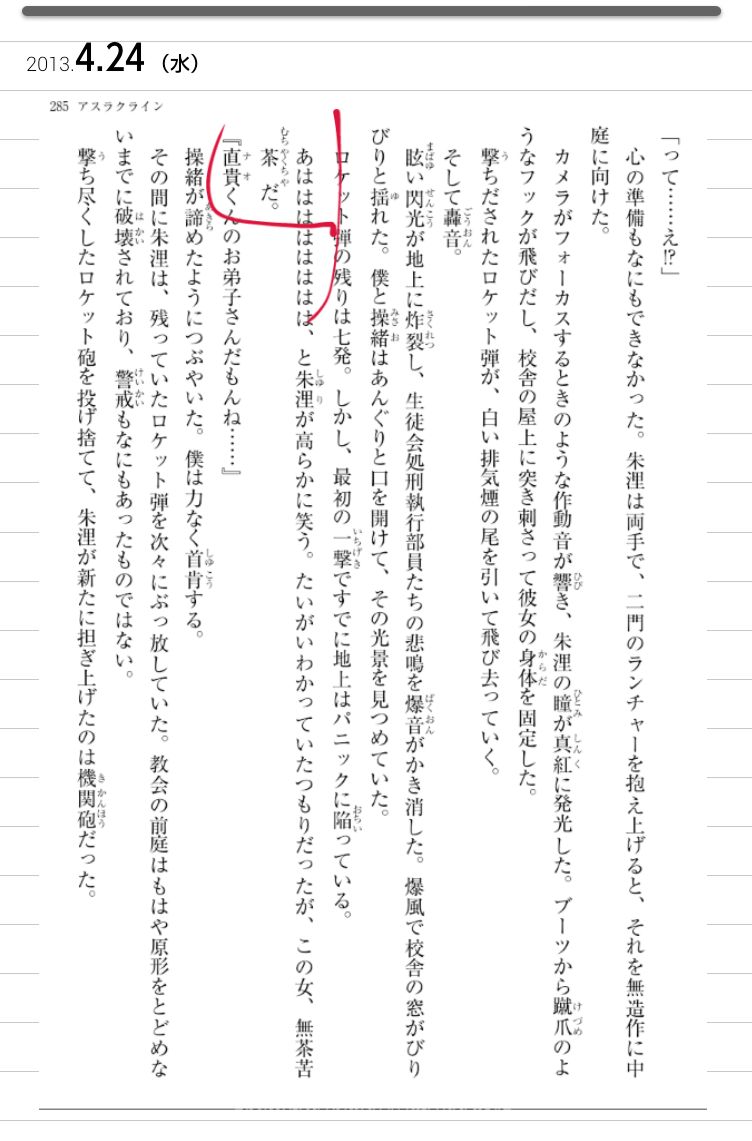 2013.4.24（水）
285 アスラクライン
「って……え!?」
心の準備もなにもできなかった。朱浬は両手で、二門のランチャーを抱え上げると、それを無造作に中
庭に向けた。
カメラがフォーカスするときのような作動音が響き、朱浬の瞳が真紅に発光した。ブーツから蹴爪のよ
うなフックが飛びだし、校舎の屋上に突き刺さって彼女の身体を固定した。
撃ちだされたロケット弾が、白い排気煙の尾を引いて飛び去っていく。
そして轟音。
眩い閃光が地上に炸裂し、生徒会処刑執行部員たちの悲鳴を爆音がかき消した。爆風で校舎の窓がびり
びりと揺れた。僕と操緒はあんぐりと口を開けて、その光景を見つめていた。
ロケット弾の残りは七発。しかし、最初の一撃ですでに地上はパニックに陥っている。
あはははははははは、と朱浬が高らかに笑う。たいがいわかっていたつもりだったが、この女、無茶苦
茶だ。
『直貴くんのお弟子さんだもんね……』
操緒が諦めたようにつぶやいた。僕は力なく首肯する。
その間に朱浬は、残っていたロケット弾を次々にぶっ放していた。教会の前庭はもはや原形をとどめな
いまでに破壊されており、警戒もなにもあったものではない。
撃ち尽くしたロケット砲を投げ捨てて、朱浬が新たに担ぎ上げたのは機関砲だった。